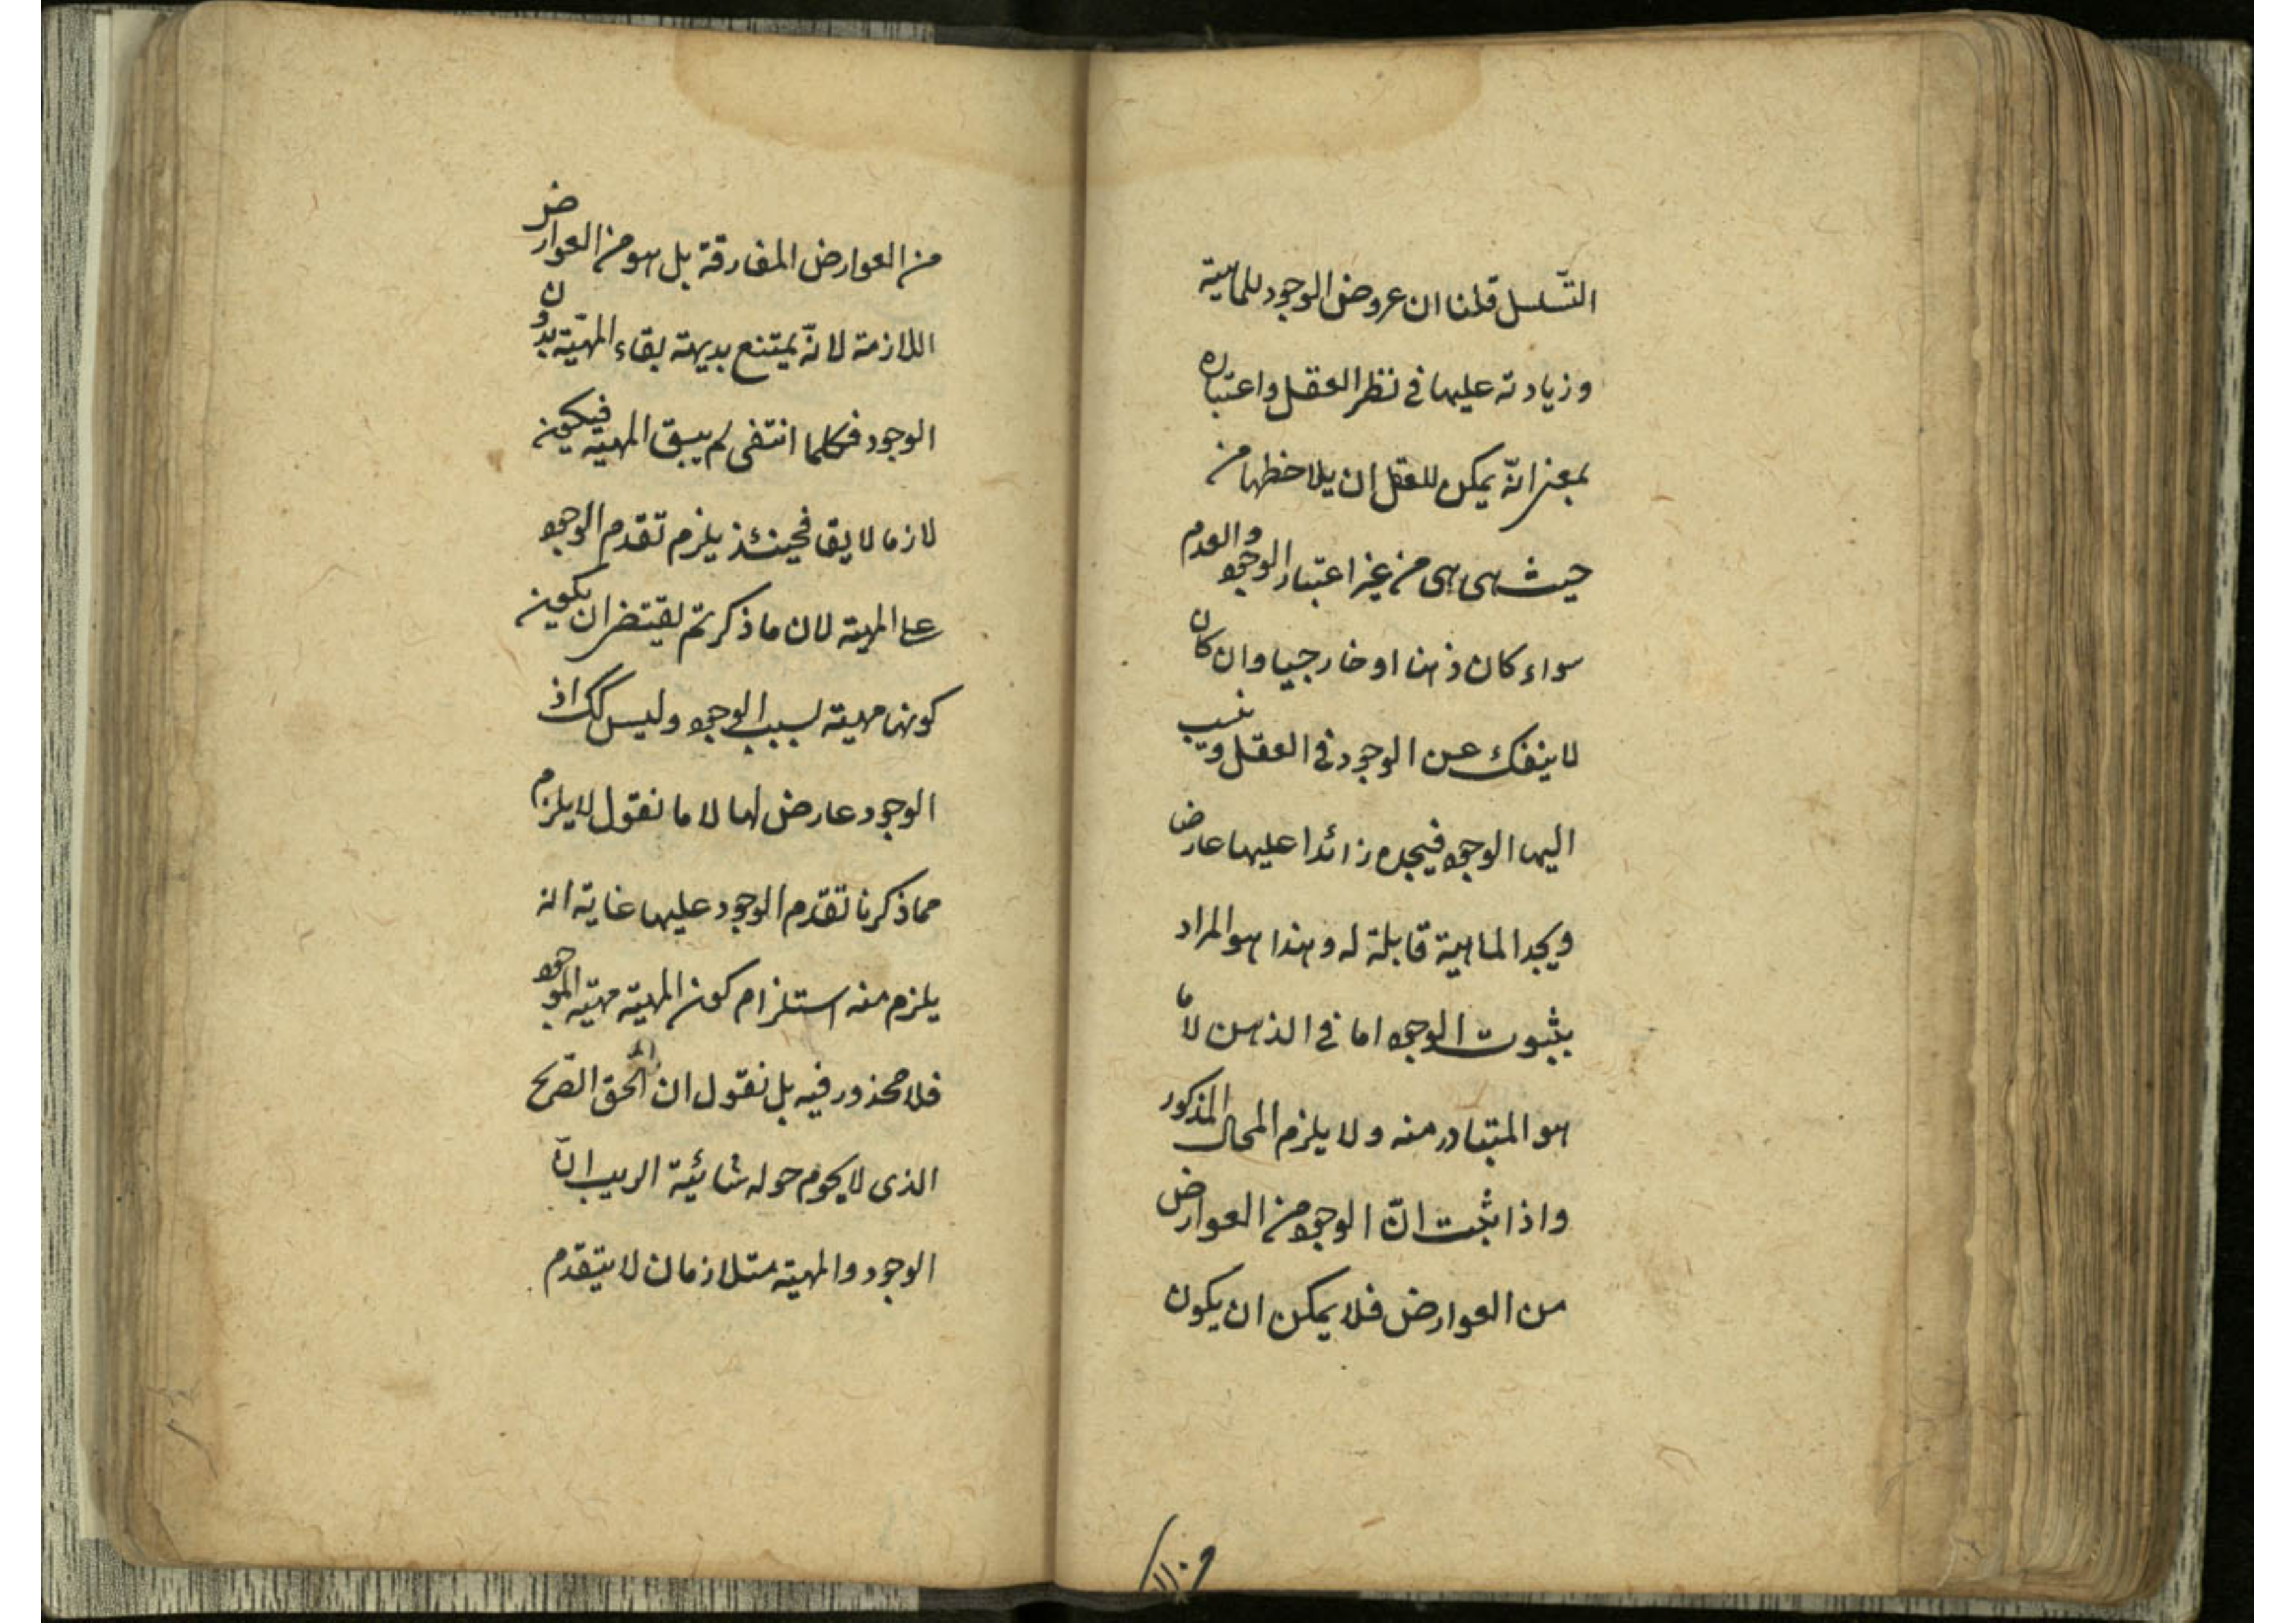 التسلسل قلنا ان عروض الوجود للماهية
وزيادته عليها في نظر العقل واعتباره
بمعنى انّه يمكن للعقل ان يلاحظها من
حيث هي هي من غير اعتبار الوجود والعدم
سواء كان ذهنا او خارجيا وان كان
لا ينفك عن الوجود في العقل وينسب
اليها الوجود فيجده زائدا عليها عارض
ويجد الماهية قابلة له وهذا هو المراد
بثبوت الوجود اما في الذهن لا ما
هو المتبادر منه ولا يلزم المحال المذكور
واذا ثبت انّ الوجود من العوارض
من العوارض فلا يمكن ان يكون
من العوارض المفارقة بل هو من العوارض
اللازمة لانّه يمتنع بديهة بقاء المهيّة بدون
الوجود فكلما انتفى لم يبق المهية فيكون
لازما لا يقا فحينئذ يلزم تقدم الوجود
على المهية لان ما ذكرتم يقتضى ان يكون
كونها مهية بسبب الوجود وليس كك اذ
الوجود عارض لها لا ما نقول لا يلزم
مما ذكرنا تقدم الوجود عليها غاية انه
يلزم منه استلزام كون المهية مهية الموجود
فلا محذور فيه بل نقول ان الحق الصريح
الذى لا يحوم حوله شائبة الريب انّ
الوجود والمهية متلازمان لا يتقدم